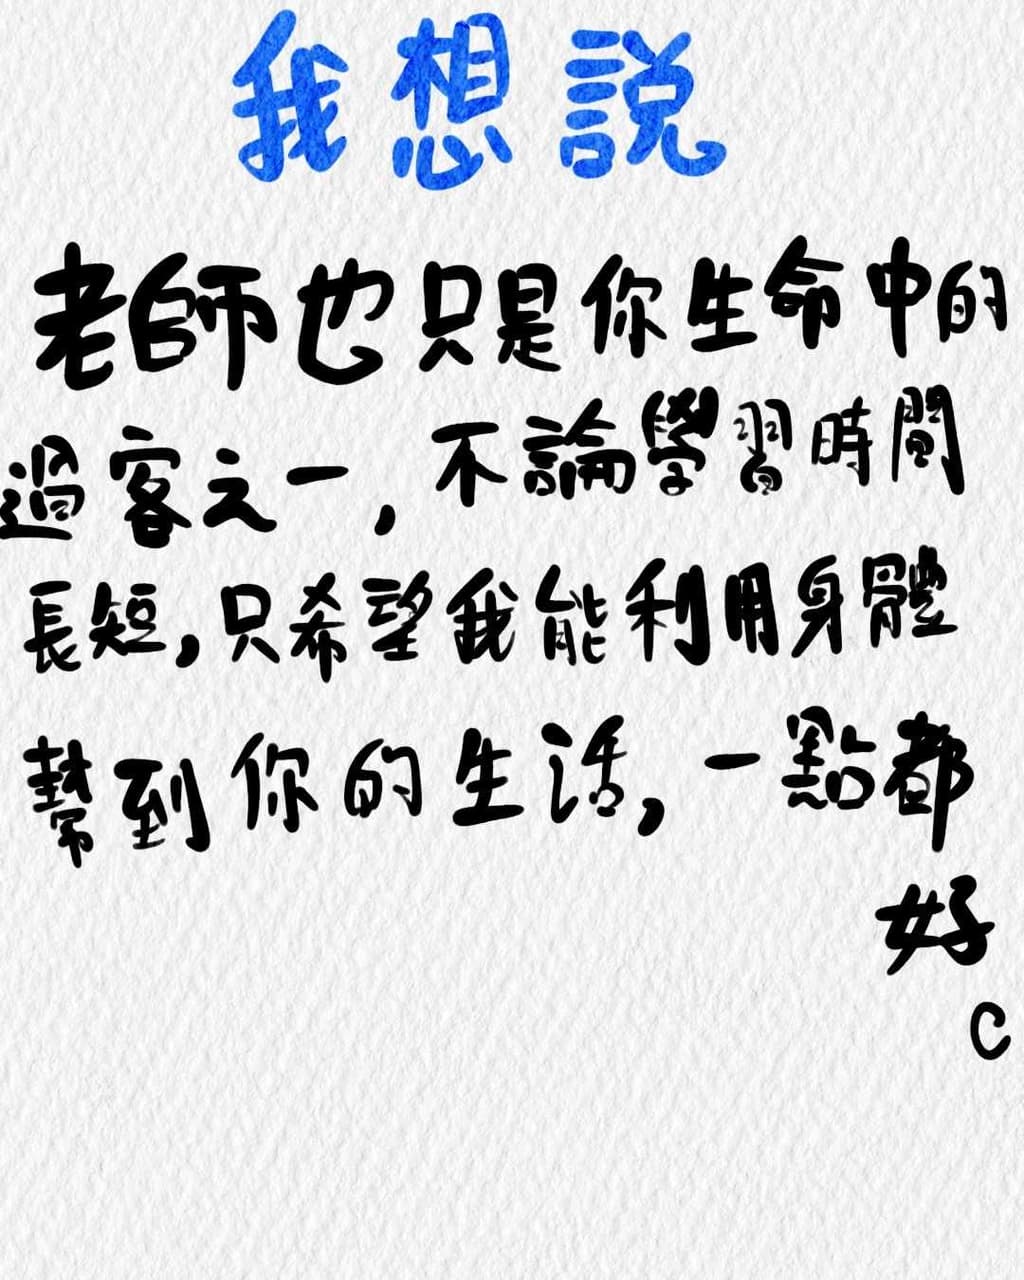 我想說
老師也只是你生命中的
過客之一，不論學習時間
長短，只希望我能利用身體
幫到你的生活，一點都
好
C